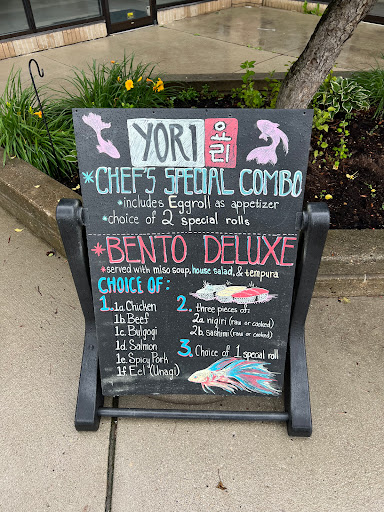 YORI 요리
*CHEF'S SPECIAL COMBO
*includes Eggroll as appetizer
*choice of 2 special rolls
*BENTO DELUXE
*served with miso soup, house salad, & tempura
CHOICE OF:
1. 1a Chicken
1b Beef
1c Bulgogi
1d Salmon
1e. Spicy Pork
1f Eel (Unagi)
2. three pieces of
2a nigiri (raw or cooked)
2b. sashimi (raw or cooked)
3. Choice of 1 special roll